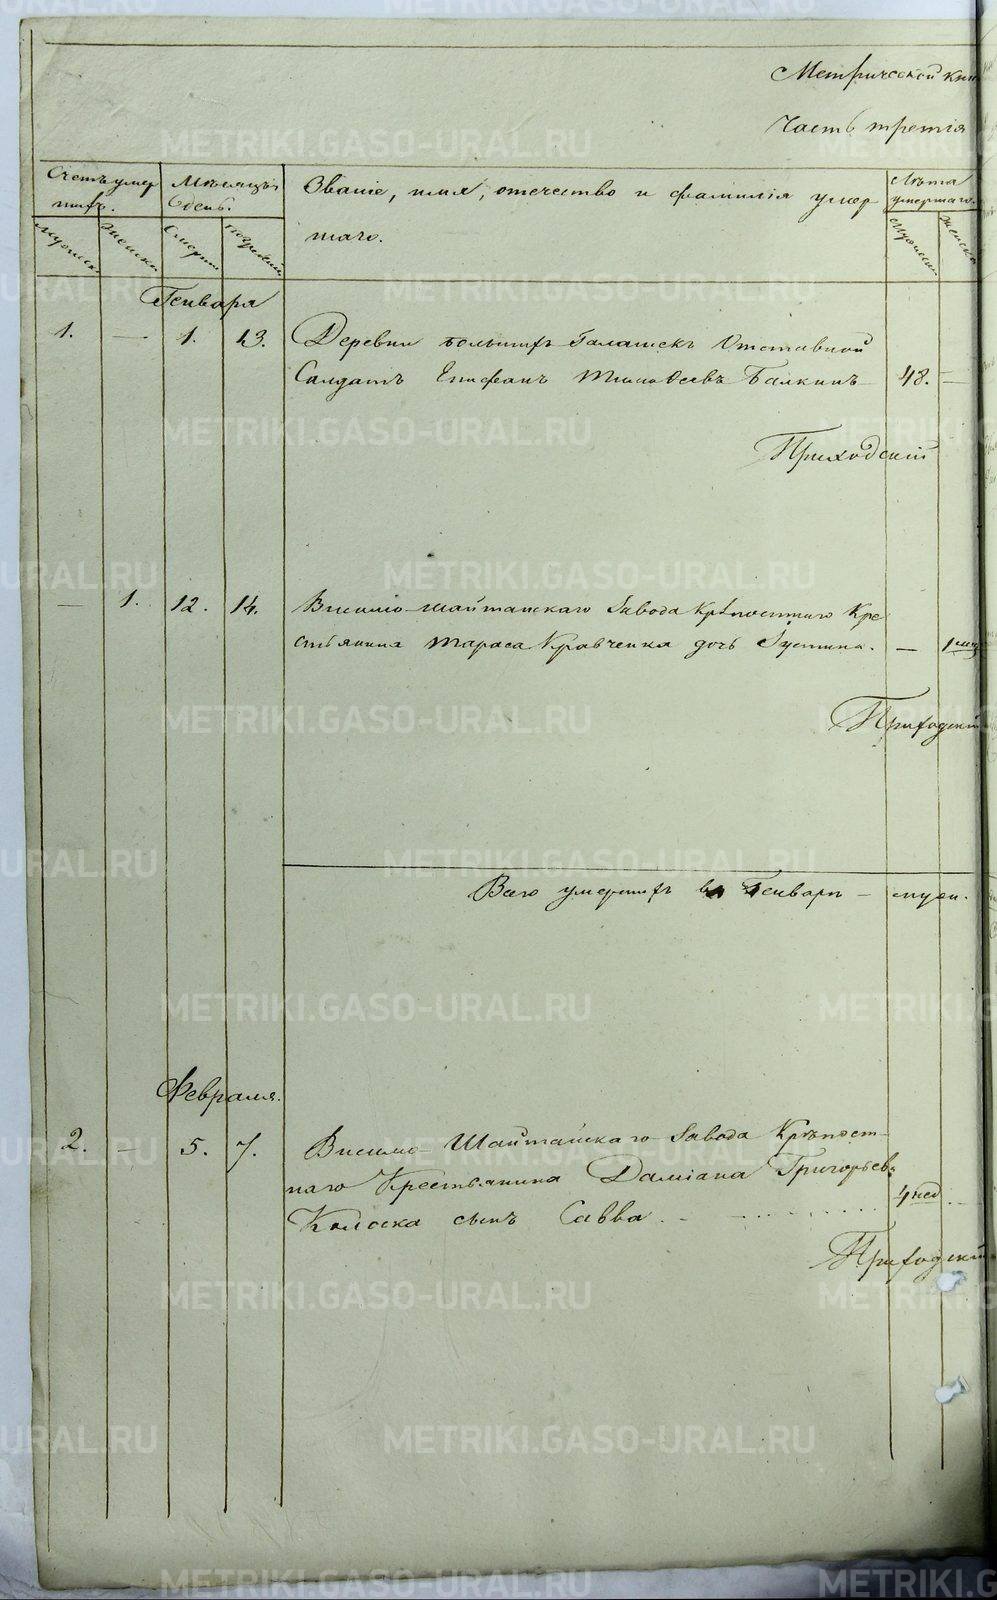 Метрической кни
Часть третія
Счетъ умер
шихъ.
Мѣсяцъ
и день.
Званіе, имя, отечество и фамилія умер
шаго.
Лѣта
умершаго.
Мужеска
Женска
Смерти
Погребенія
Мужеска
Женска
Генваря
1. — 1. 13. Деревни большихъ Галашекъ Отставной
Салдатъ Епифанъ Тимофеевъ Балкинъ 48. —
Приходскій
— 1. 12. 14. Висимо-шайтанскаго Завода Крѣпостнаго Кре
стьянина Тараса Кравченка дочь Іустина. — 1 мѣс
Приходскій
Всего умершихъ въ Генварѣ — муж.
Февраля.
2. — 5. 7. Висимо-Шайтанскаго Завода Крѣпост-
наго Крестьянина Даміана Григорьева
Колоска сынъ Савва. 4 нед
Приходскій
METRIKI.GASO-URAL.RU